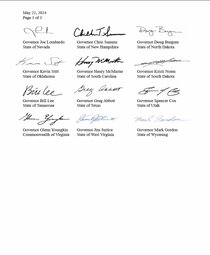 May 22, 2024
Page 3 of 3
Governor Joe Lombardo Governor Chris Sununu Governor Doug Burgum
State of Nevada State of New Hampshire State of North Dakota
Governor Kevin Stitt Governor Henry McMaster Governor Kristi Noem
State of Oklahoma State of South Carolina State of South Dakota
Bill Lee Greg Abbott
Governor Bill Lee Governor Greg Abbott Governor Spencer Cox
State of Tennessee State of Texas State of Utah
Governor Glenn Youngkin Governor Jim Justice Governor Mark Gordon
Commonwealth of Virginia State of West Virginia State of Wyoming